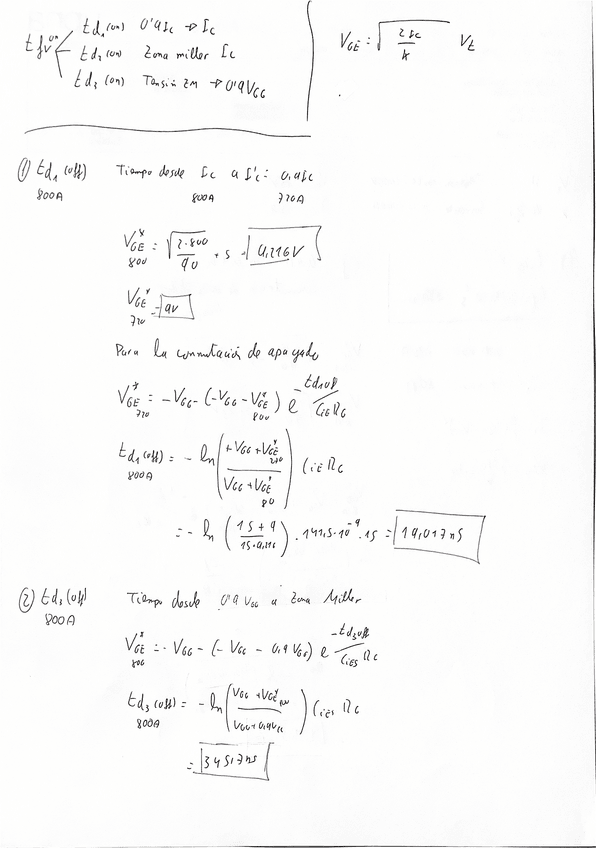 td₁(on) 0'9Ic → Ic
td₂(on) Zona miller Ic
td₃(on) Tensión ZM → 0'9VGG
VGE = √(2Ic/k) Vt
① td₁(off) Tiempo desde Ic a I'c = 0,9Ic
800A 800A 720A
VGE* 800 = √(2·800/90) + 5 = 9,216V
VGE* 720 = 9V
Para la conmutación de apagado
VGE* 720 = -VGG - (-VGG - VGE* 800) e^(-td₁off/CiE RG)
td₁(off) 800A = -ln(+VGG + VGE* 720 / VGG + VGE* 80) CiE RG
= -ln(15+9 / 15·9,216) · 141,5·10⁻⁹ · 15 = 19,017nS
② td₃(off) Tiempo desde 0'9 VGG a zona Miller
800A
VGE* 800 = -VGG - (-VGG - 0,9 VGG) e^(-td₃off/CiES RG)
td₃(off) 800A = -ln(VGG + VGE* / VGG + 0,9VGG) CiES RG
= 345,7nS